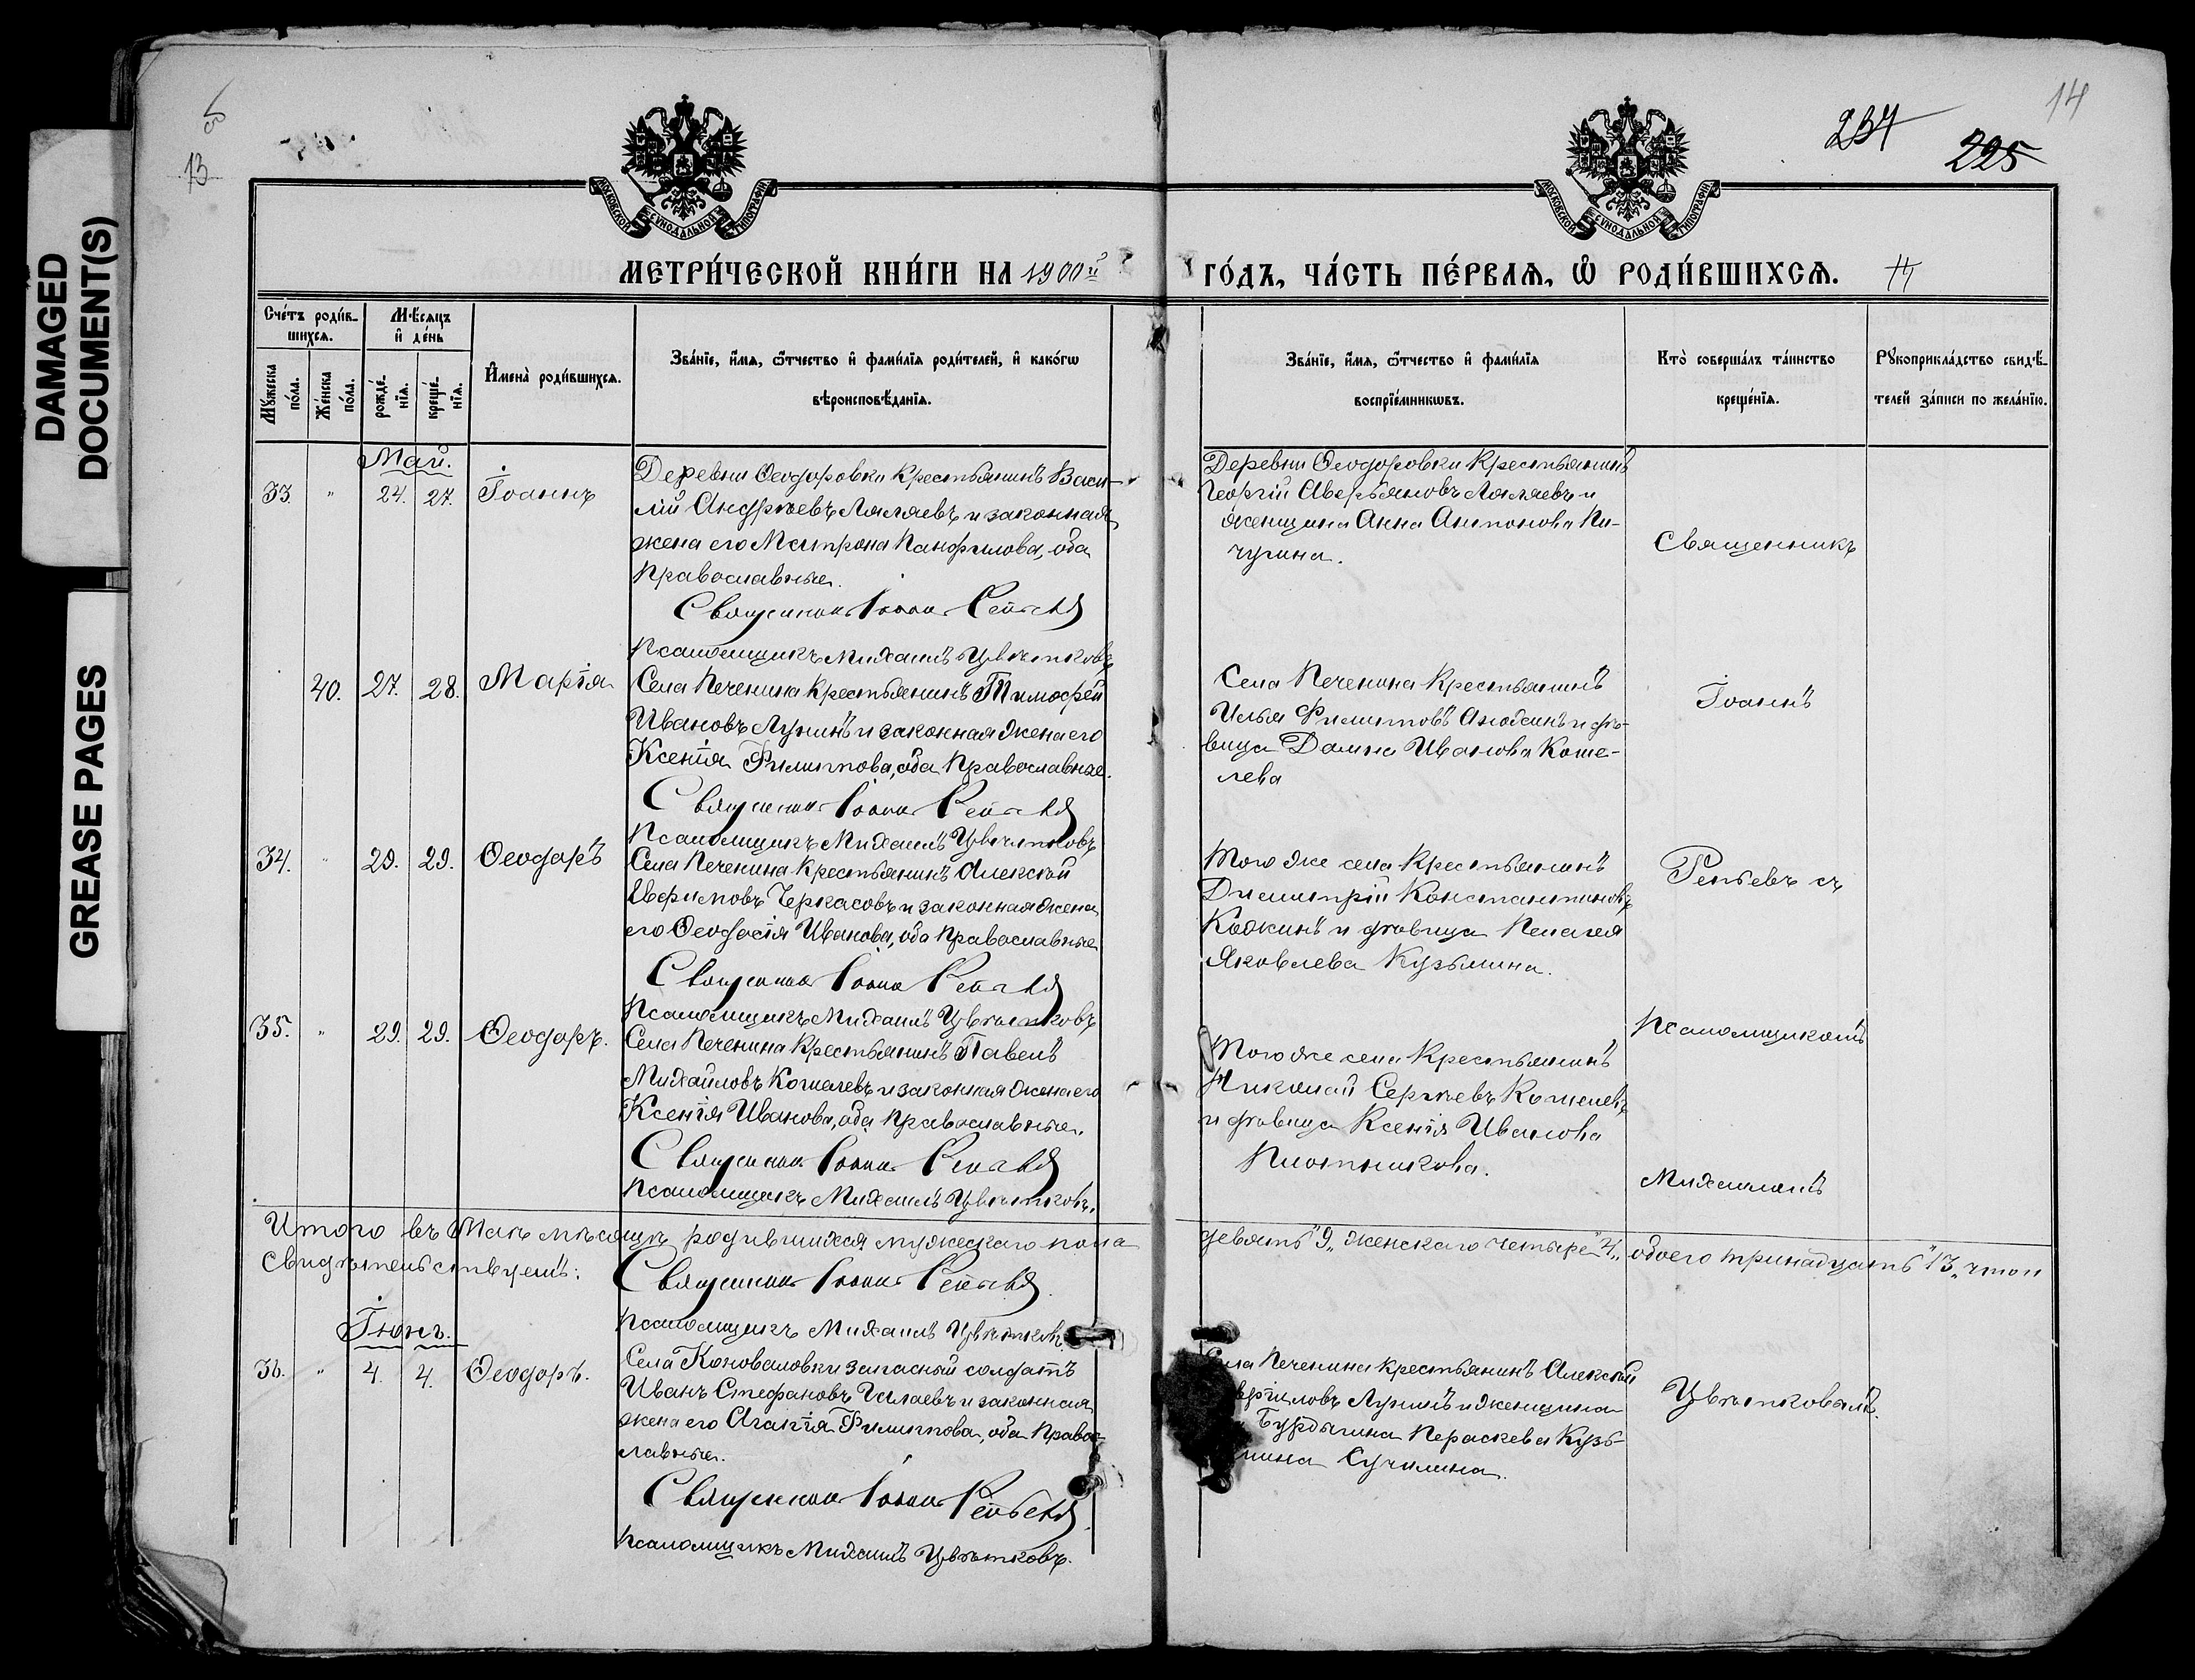 DAMAGED
DOCUMENT(S)
GREASE PAGES
13
14
234
225
МОСКОВСКОЙ СѴНОДАЛЬНОЙ ТИПОГРАФІИ
МОСКОВСКОЙ СѴНОДАЛЬНОЙ ТИПОГРАФІИ
МЕТРИ́ЧЕСКОЙ КНИ́ГИ НА 1900й
ГО́ДЪ, ЧА́СТЬ ПЕ́РВАѦ, Ѡ҆ РОДИ́ВШИХСѦ.
Сче́тъ роди́в-
шихсѧ.
Мꙋ́жеска
по́ла.
Же́нска
по́ла.
Мѣ́сѧцъ
и҆ де́нь
рожде́-
нїѧ.
креще́-
нїѧ.
И҆мена̀ роди́вшихсѧ.
Зва́нїе, и҆́мѧ, ѻ҆́тчество и҆ фами́лїѧ роди́телей, и҆ како́гѡ
вѣроисповѣ́данїѧ.
Зва́нїе, и҆́мѧ, ѻ҆́тчество и҆ фами́лїѧ
воспрїе́мникѡвъ.
Кто̀ соверша́лъ та́инство
креще́нїѧ.
Рꙋкоприкла́дство свидѣ́-
телей за́писи по жела́нїю.
Май.
33. " 24. 27. Іоаннъ
Деревни Ѳеодоровки крестьянинъ Васи-
лій Андреевъ Лаляевъ и законная
жена его Матрона Панфилова, оба
православные.
Священникъ Іоаннъ Репьевъ
Псаломщикъ Михаилъ Цвѣтковъ
Деревни Ѳеодоровки крестьянинъ
Георгій Аверьяновъ Лаляевъ и
женщина Анна Антонова Пи-
чугина.
Священникъ
40. 27. 28. Марія
Села Печенина крестьянинъ Тимофей
Ивановъ Лунинъ и законная жена его
Ксенія Филиппова, оба православные.
Священникъ Іоаннъ Репьевъ
Псаломщикъ Михаилъ Цвѣтковъ
Села Печенина крестьянинъ
Илья Филипповъ и дѣ-
вица Домна Иванова Коше-
лева
Іоаннъ
34. " 29. 29. Ѳеодоръ
Села Печенина крестьянинъ Алексѣй
Ефимовъ Черкасовъ и законная жена
его Ѳеодосія Иванова, оба православные
Священникъ Іоаннъ Репьевъ
Псаломщикъ Михаилъ Цвѣтковъ
Того же села крестьянинъ
Димитрій Константиновъ
Кожинъ и дѣвица Пелагея
Яковлева Кузьмина.
Репьевъ съ
35. " 29. 29. Ѳеодоръ.
Села Печенина крестьянинъ Павелъ
Михайловъ Кошелевъ и законная жена его
Ксенія Иванова, оба православные.
Священникъ Іоаннъ Репьевъ
Псаломщикъ Михаилъ Цвѣтковъ.
Того же села крестьянинъ
Николай Сергѣевъ Кошелевъ
и дѣвица Ксенія Иванова
Плотникова.
Псаломщикомъ
Михаиломъ
Итого въ Маѣ мѣсяцѣ родившихся мужескаго пола девять "9" женскаго четыре "4" обоего тринадцать "13" что и
свидѣтельствуемъ:
Священникъ Іоаннъ Репьевъ
Псаломщикъ Михаилъ Цвѣтковъ
Іюнь.
36. " 4. 4. Ѳеодоръ.
Села Коноваловки запасный солдатъ
Иванъ Стефановъ и законная
жена его Агапія Филиппова, оба право-
славные.
Священникъ Іоаннъ Репьевъ
Псаломщикъ Михаилъ Цвѣтковъ.
Села Печенина крестьянинъ Алексѣй
Лунинъ и женщина
Параскева Кузь-
мина Сучилина.
Цвѣтковымъ.